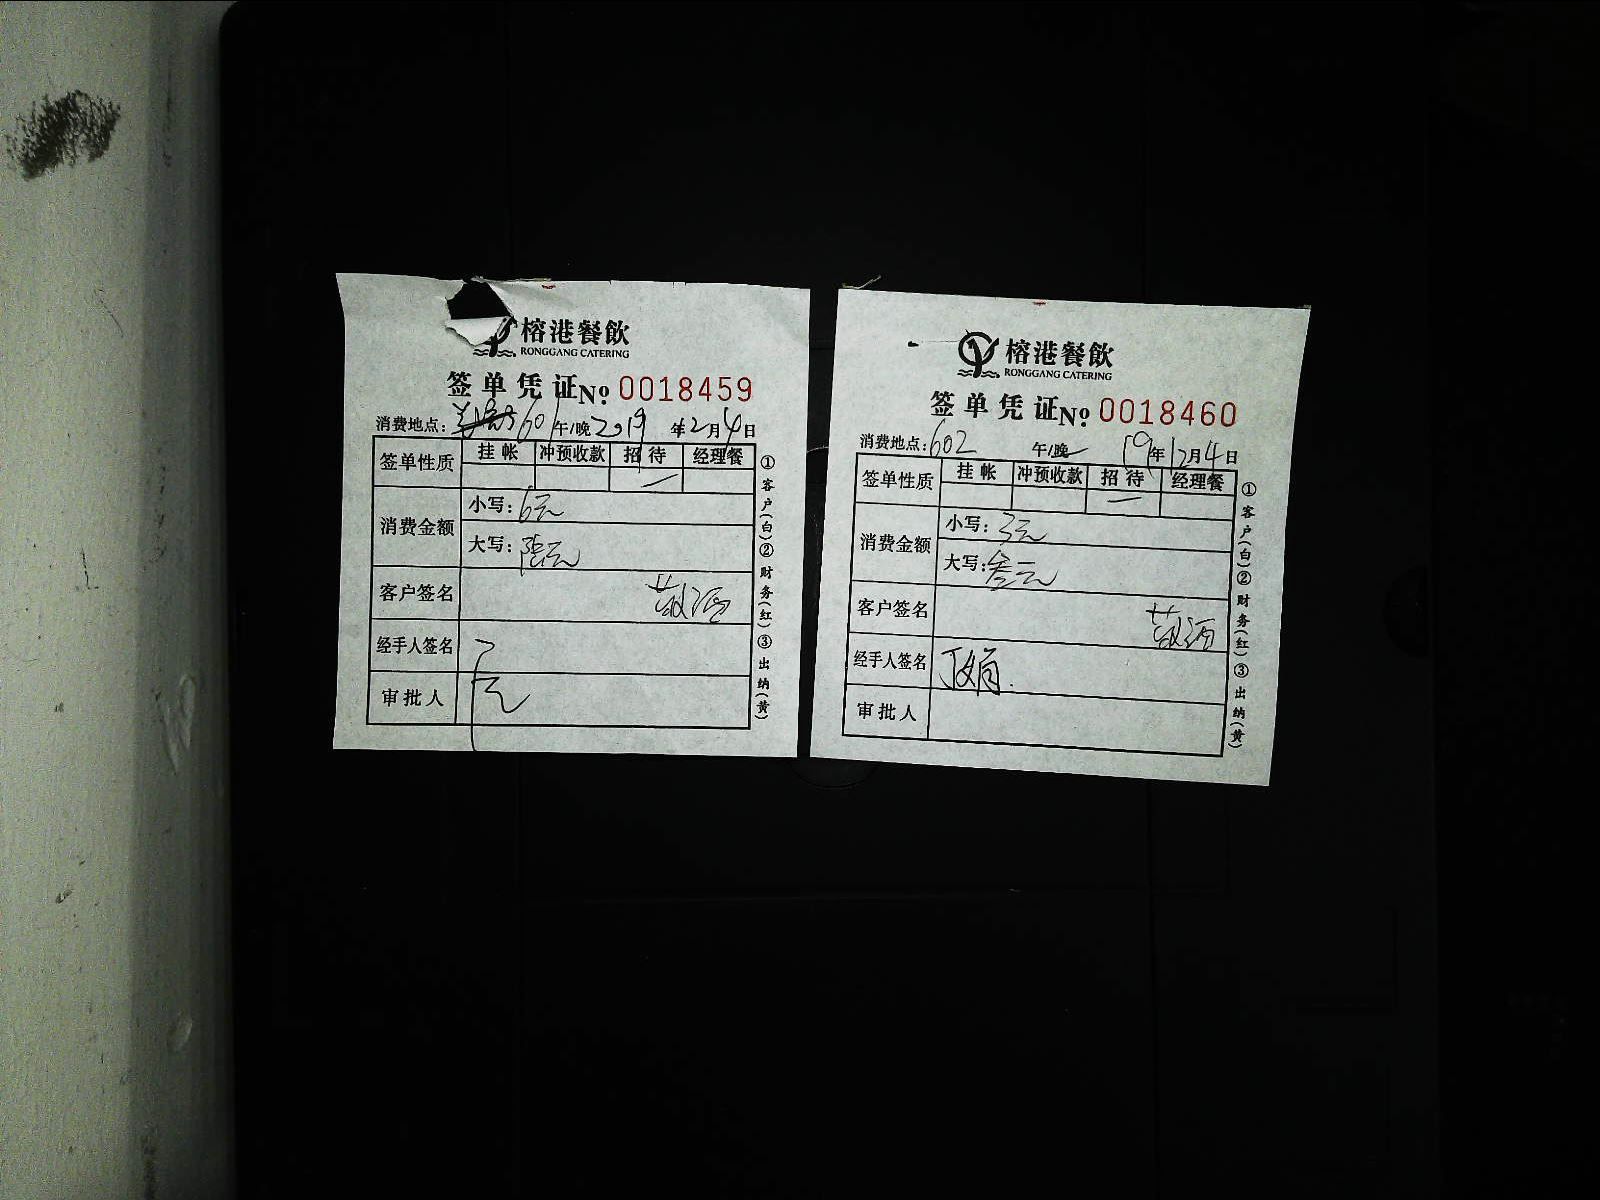 榕港餐飲
RONGGANG CATERING
签单凭证 No 0018459
消费地点: 601 午/晚 2019 年12月4日
签单性质 挂帐 冲预收款 招待 经理餐
消费金额 小写: 6元
大写: 陆元
客户签名
经手人签名
审批人
①客户(白)②财务(红)③出纳(黄)
榕港餐飲
RONGGANG CATERING
签单凭证 No 0018460
消费地点: 602 午/晚 19年12月4日
签单性质 挂帐 冲预收款 招待 经理餐
消费金额 小写: 3元
大写: 叁元
客户签名
经手人签名
审批人
①客户(白)②财务(红)③出纳(黄)